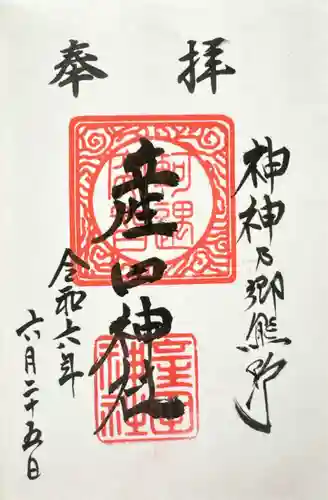 奉拝
神神乃郷熊野
産田神社
令和六年
六月二十五日
産田神社